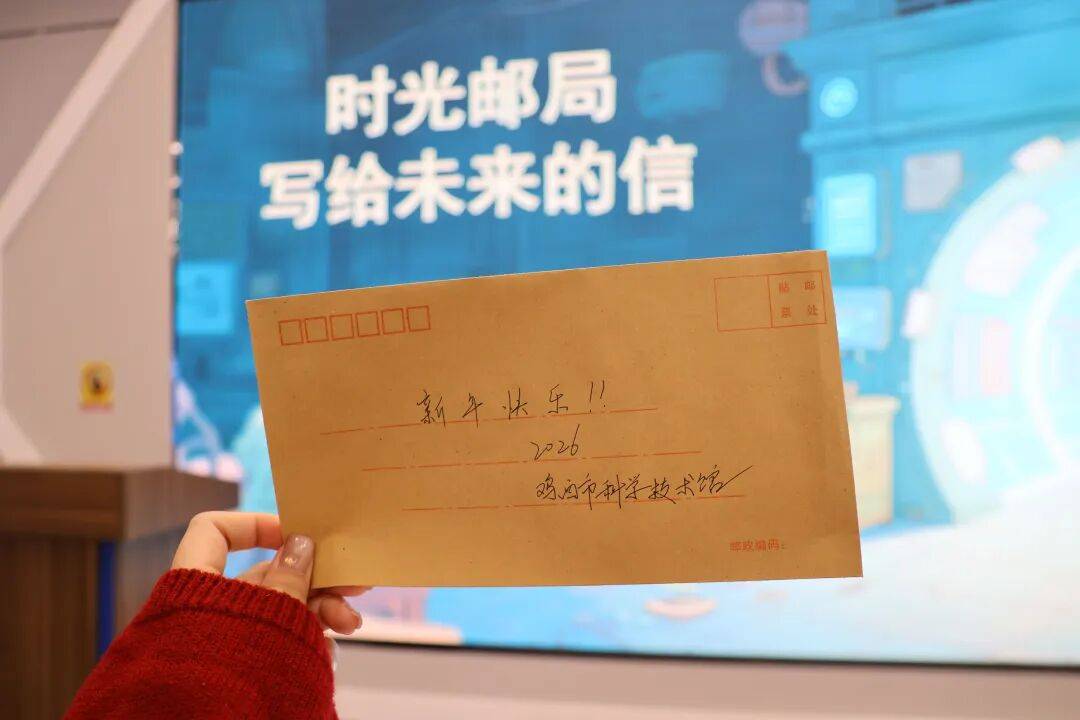 时光邮局
写给未来的信
贴 邮
票 处
新年快乐!!
2026
鸡西市科学技术馆
邮政编码: